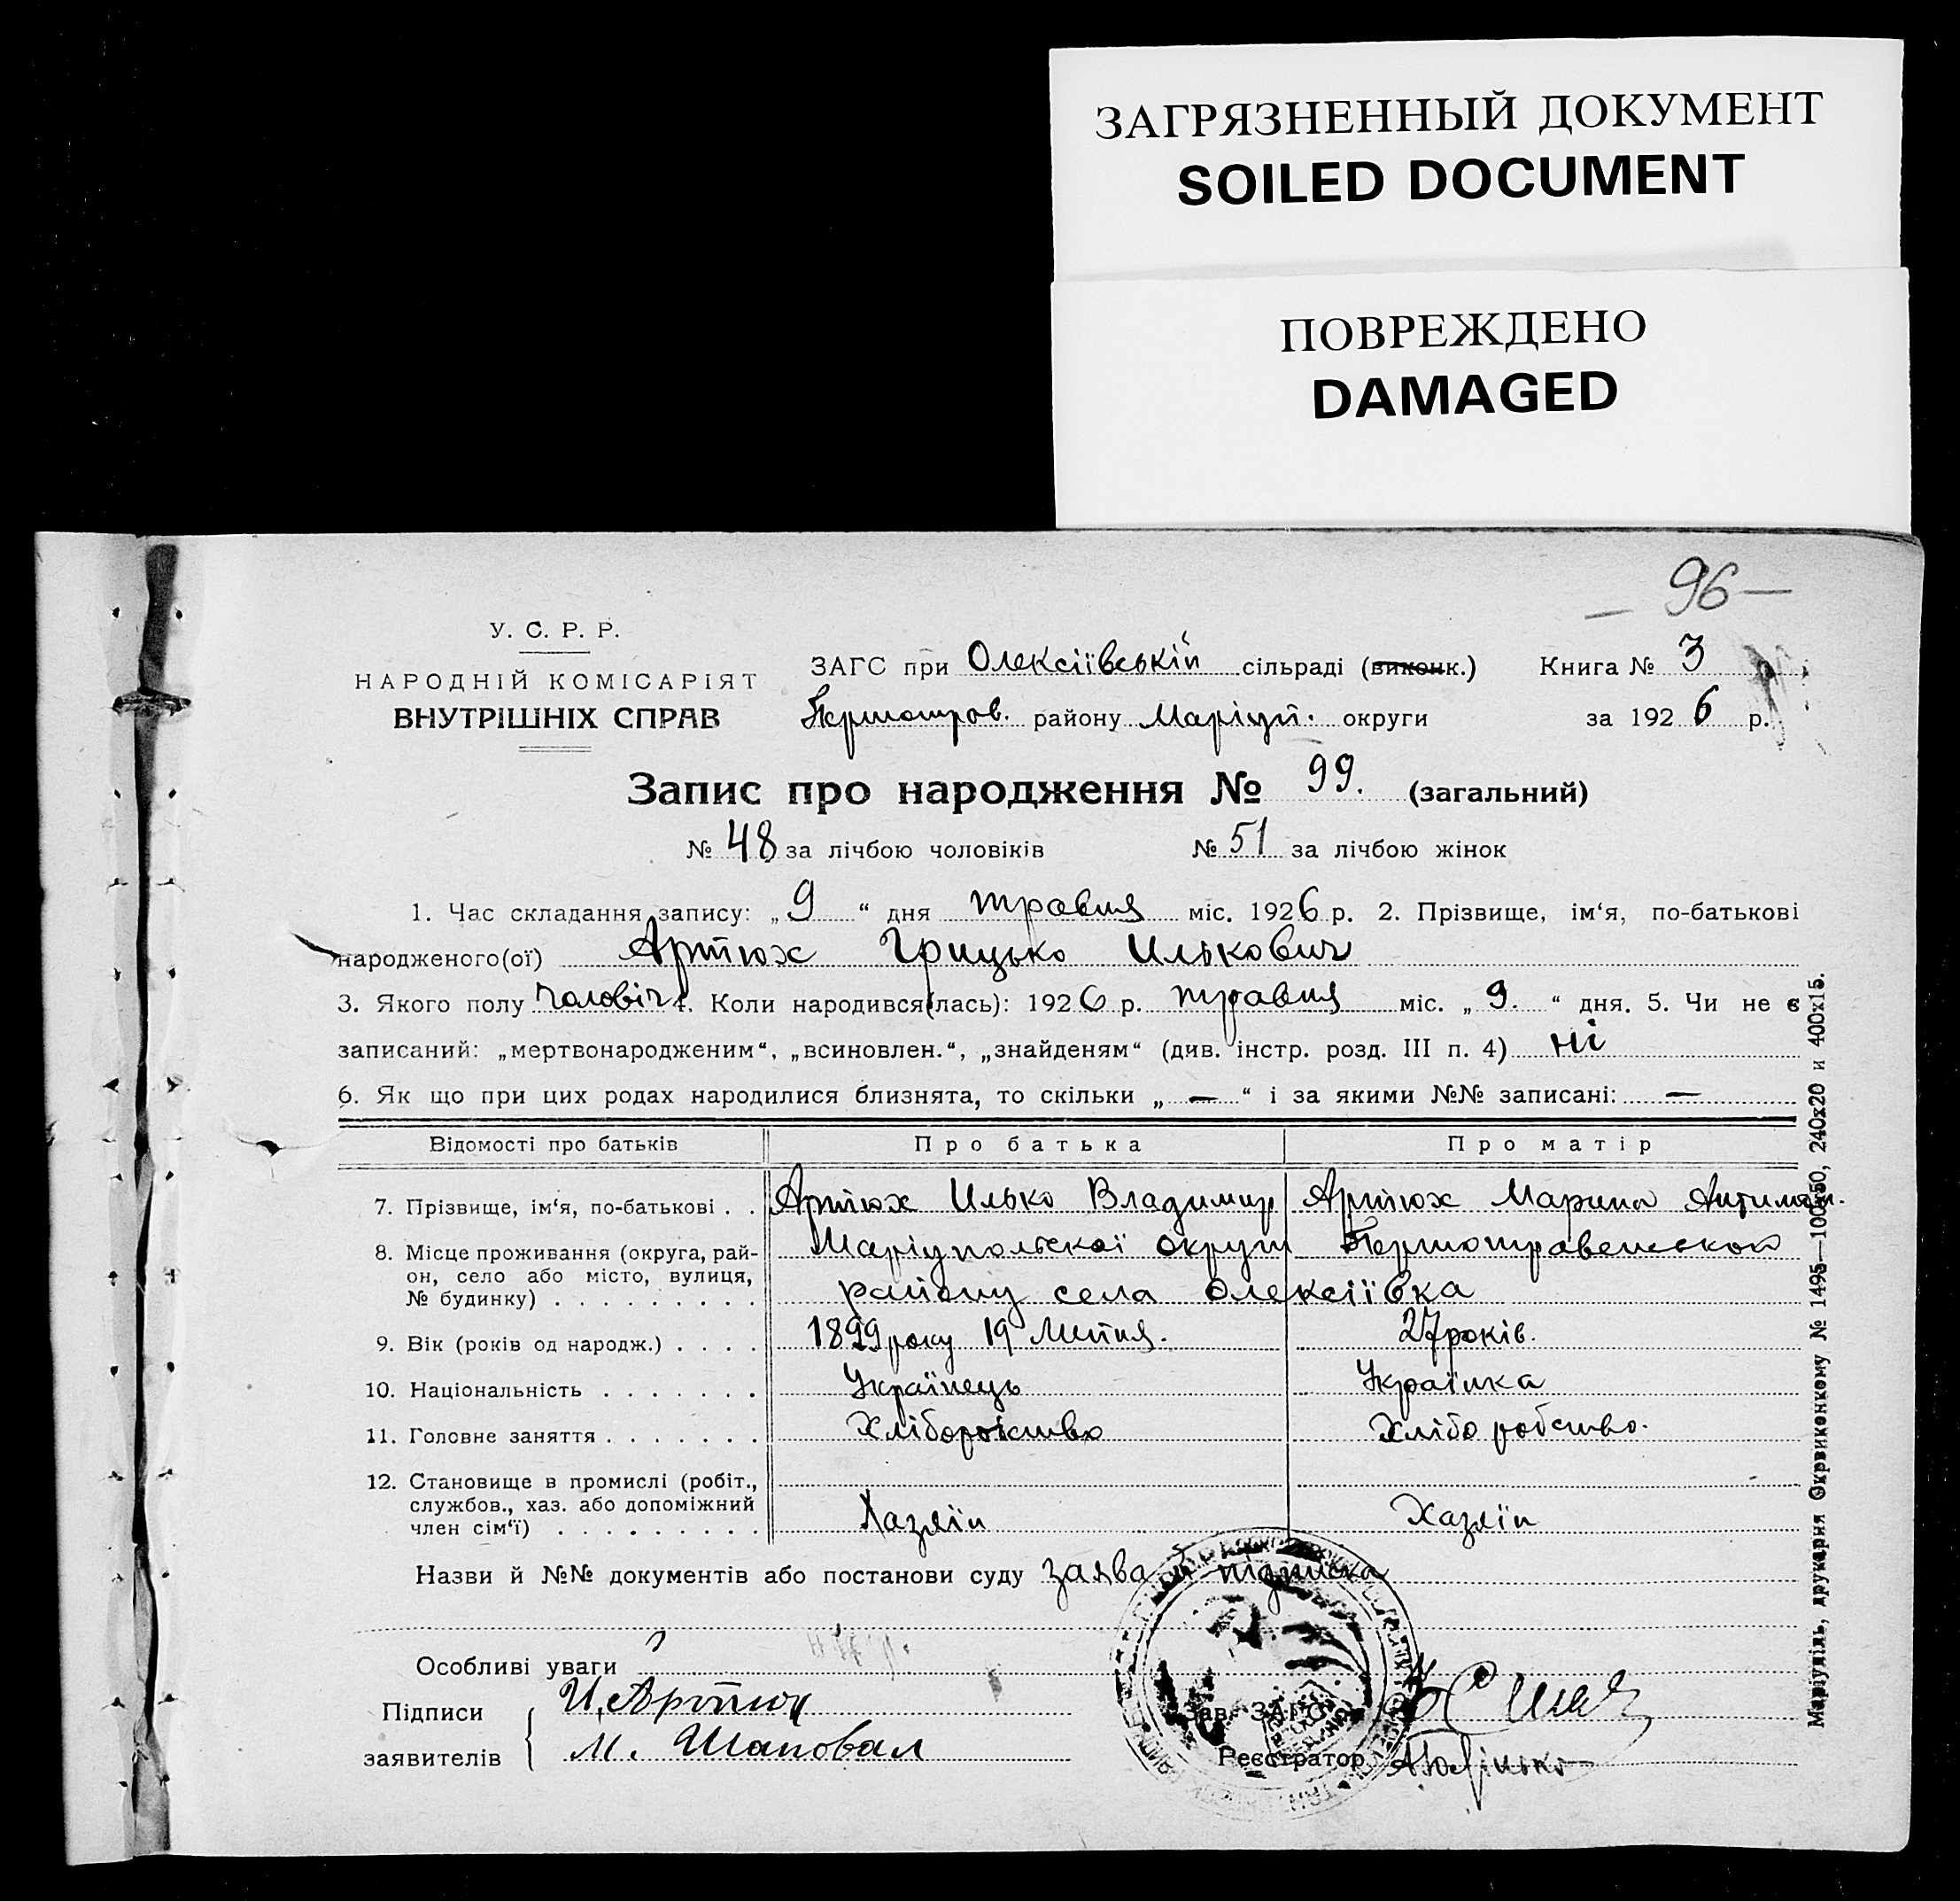 ЗАГРЯЗНЕННЫЙ ДОКУМЕНТ
SOILED DOCUMENT
ПОВРЕЖДЕНО
DAMAGED
— 96 —
У. С. Р. Р.
НАРОДНІЙ КОМІСАРІЯТ
ВНУТРІШНІХ СПРАВ
ЗАГС при Олексіївській сільраді (виконк.) Книга № 3
Першотров. району Маріуп. округи за 1926 р.
Запис про народження № 99. (загальний)
№ 48 за лічбою чоловіків № 51 за лічбою жінок
1. Час складання запису: „9“ дня травня міс. 1926 р. 2. Прізвище, ім‘я, по-батькові
народженого(ої) Артюх Грицько Илькович
3. Якого полу чоловіч 4. Коли народився(лась): 1926 р. травня міс. „9.“ дня. 5. Чи не є
записаний: „мертвонародженим“, „всиновлен.“, „знайденям“ (див. інстр. розд. III п. 4) ні
6. Як що при цих родах народилися близнята, то скільки „—“ і за якими №№ записані: —
Відомості про батьків Про батька Про матір
7. Прізвище, ім‘я, по-батькові . . Артюх Илько Владимир Артюх Марина
8. Місце проживання (округа, рай- Маріупольської округи Першотравенського
он, село або місто, вулиця, району села Олексіївка
№ будинку) . . . . . . . . .
9. Вік (років од народж.) . . . . 1899 року 19 Липня. 27 років.
10. Національність . . . . . . . Українець Українка
11. Головне заняття . . . . . . . Хліборобство Хлібо робство.
12. Становище в промислі (робіт.,
службов., хаз. або допоміжний
член сім‘ї) . . . . . . . . . Хазяїн Хазяїн
Назви й №№ документів або постанови суду заява й підписка
Особливі уваги
Підписи И. Артюх Зав. ЗАГС
заявителів М. Шаповал Реєстратор
Маріупіль, друкарня Окрвиконкому № 1495—100x50, 240x20 и 400x15.